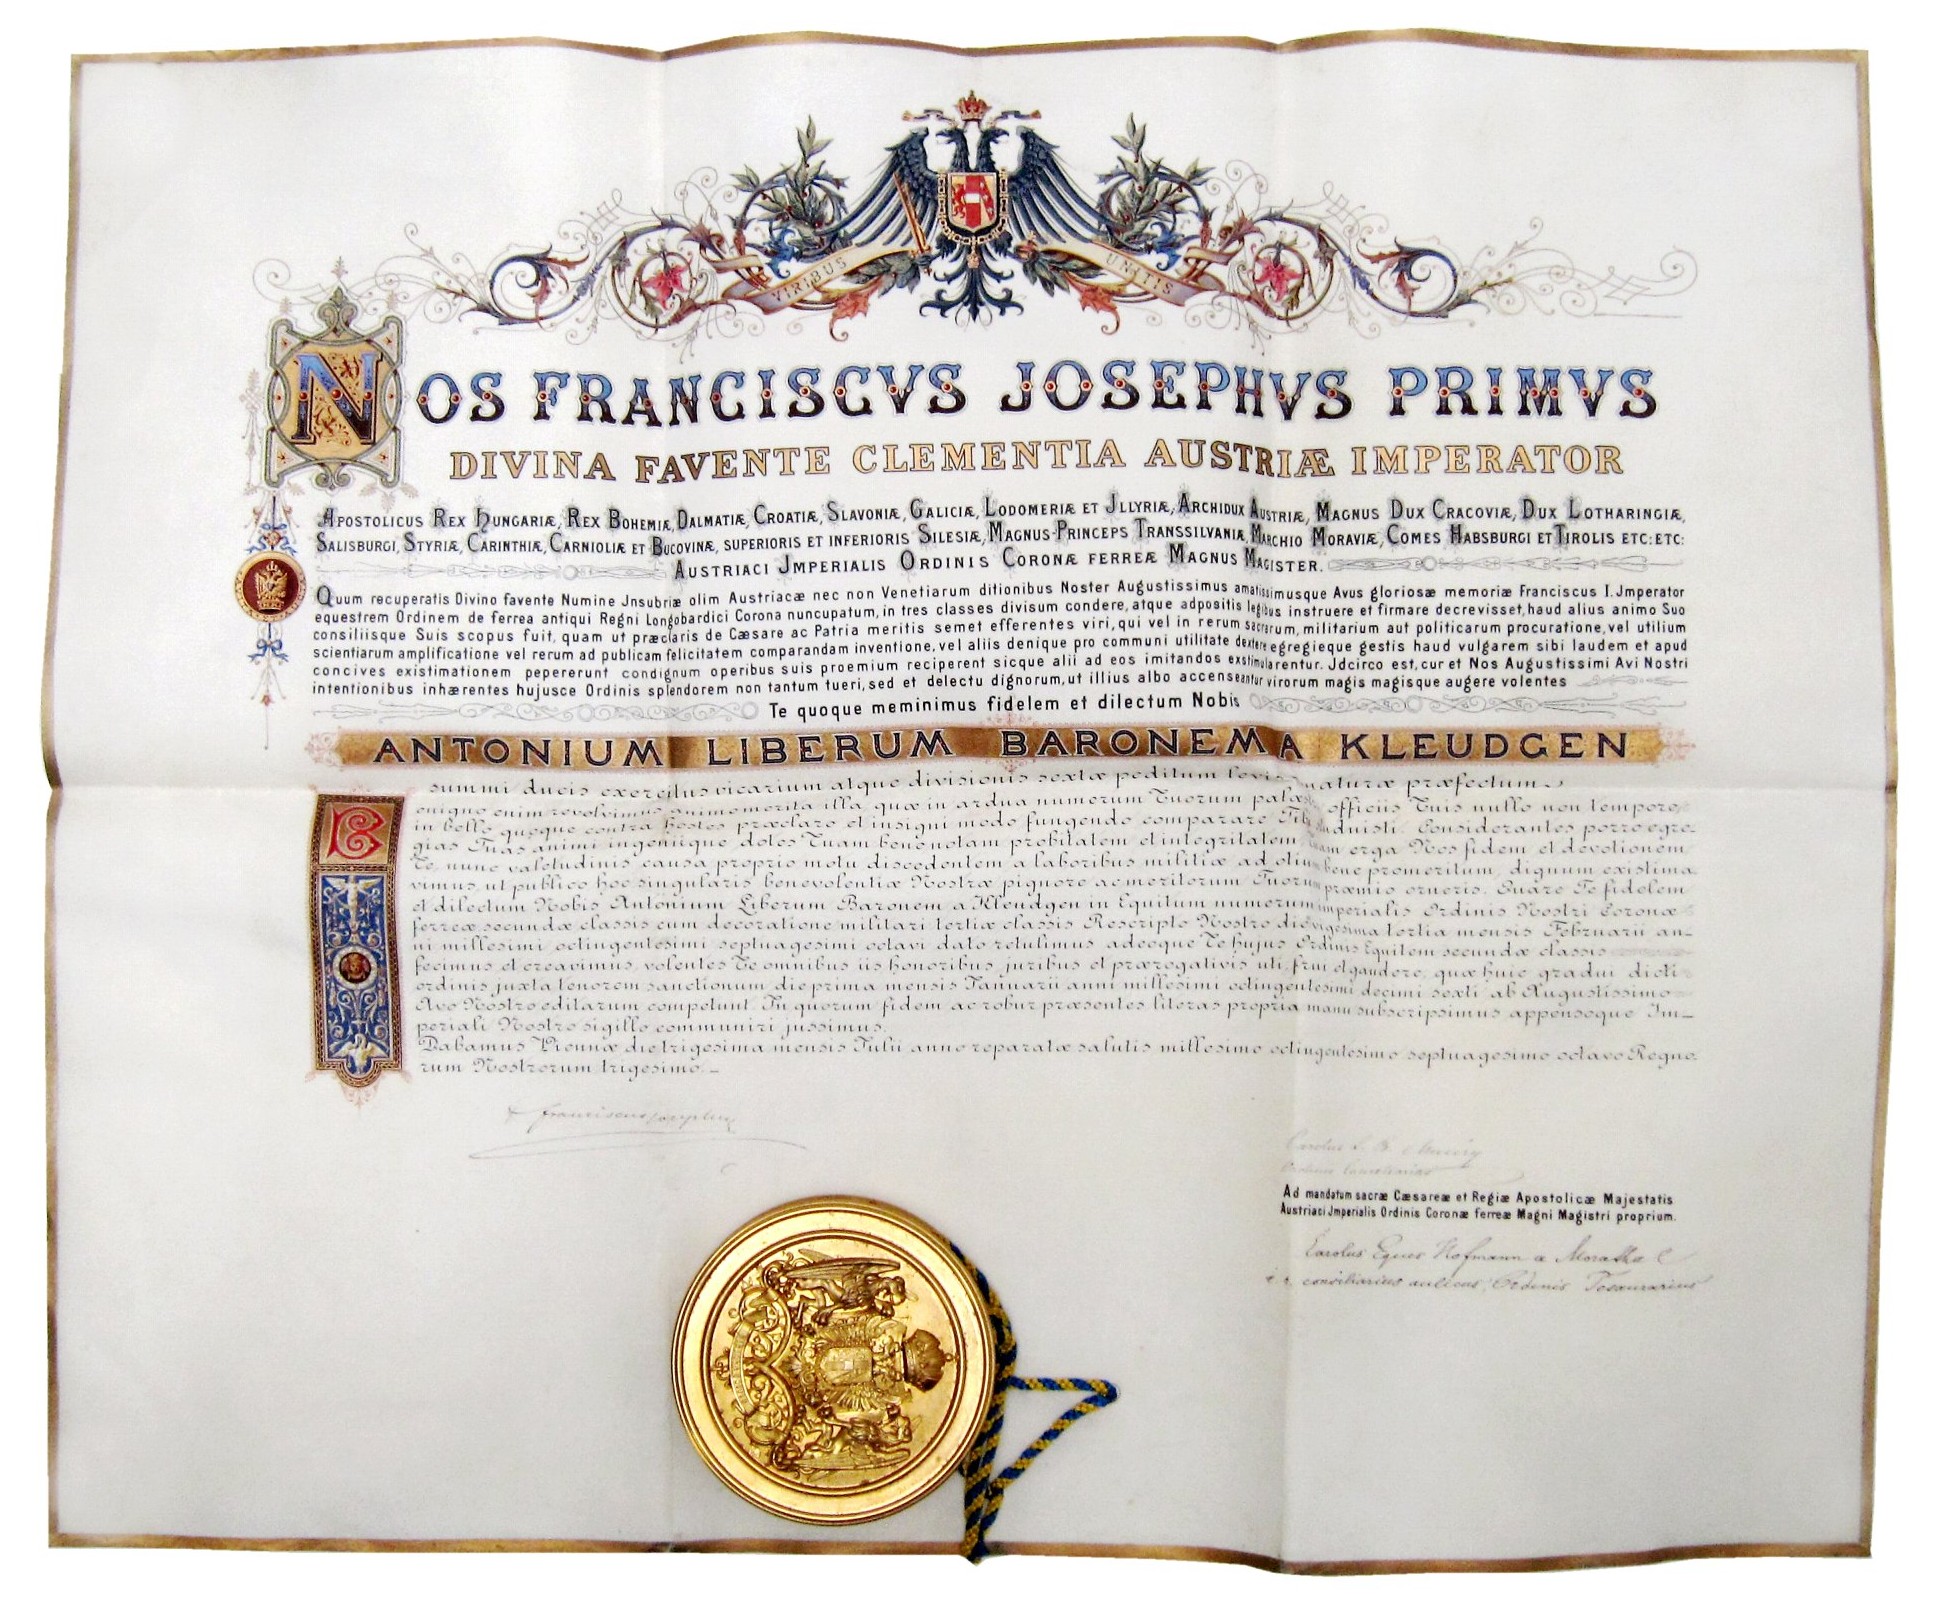 VIRIBUS UNITIS
NOS FRANCISCVS JOSEPHVS PRIMVS
DIVINA FAVENTE CLEMENTIA AUSTRIÆ IMPERATOR
APOSTOLICUS REX HUNGARIÆ, REX BOHEMIÆ, DALMATIÆ, CROATIÆ, SLAVONIÆ, GALICIÆ, LODOMERIÆ ET JLLYRIÆ, ARCHIDUX AUSTRIÆ, MAGNUS DUX CRACOVIÆ, DUX LOTHARINGIÆ,
SALISBURGI, STYRIÆ, CARINTHIÆ, CARNIOLIÆ ET BUCOVINÆ, SUPERIORIS ET INFERIORIS SILESIÆ, MAGNUS-PRINCEPS TRANSSILVANIÆ, MARCHIO MORAVIÆ, COMES HABSBURGI ET TIROLIS ETC: ETC:
AUSTRIACI JMPERIALIS ORDINIS CORONÆ FERREÆ MAGNUS MAGISTER.
Quum recuperatis Divino favente Numine Jnsubriæ olim Austriacæ nec non Venetiarum ditionibus Noster Augustissimus amatissimusque Avus gloriosæ memoriæ Franciscus I. Jmperator
equestrem Ordinem de ferrea antiqui Regni Longobardici Corona nuncupatum, in tres classes divisum condere, atque adpositis legibus instruere et firmare decrevisset, haud alius animo Suo
consiliisque Suis scopus fuit, quam ut præclaris de Cæsare ac Patria meritis semet efferentes viri, qui vel in rerum sacrarum, militarium aut politicarum procuratione, vel utilium
scientiarum amplificatione vel rerum ad publicam felicitatem comparandam inventione, vel aliis denique pro communi utilitate dextere egregieque gestis haud vulgarem sibi laudem et apud
concives existimationem pepererunt condignum operibus suis proemium reciperent sicque alii ad eos imitandos exstimularentur. Jdcirco est, cur et Nos Augustissimi Avi Nostri
intentionibus inhærentes hujusce Ordinis splendorem non tantum tueri, sed et delectu dignorum, ut illius albo accenseantur virorum magis magisque augere volentes
Te quoque meminimus fidelem et dilectum Nobis
ANTONIUM LIBERUM BARONEM A KLEUDGEN
summi ducis exercitus vicarium atque divisionis sextæ peditum levis naturæ præfectum
Benigno enim revolvimus animo merita illa quæ in ardua numerum Tuorum officiis Tuis nullo non tempore,
in bello quoque contra hostes præclaro et insigni modo fungendo comparare Tibi studuisti. Considerantes porro egre-
gias Tuas animi ingeniique dotes Tuam bene notam probitatem et integritatem Tuam erga Nos fidem et devotionem
Te, nunc valetudinis causa proprio motu discedentem a laboribus militiæ ad otium bene promeritum, dignum existima-
vimus, ut publico hoc singularis benevolentiæ Nostræ pignore ac meritorum Tuorum præmio orneris. Quare Te fidelem
et dilectum Nobis Antonium Liberum Baronem a Kleudgen in Equitum numerum imperialis Ordinis Nostri Coronæ
ferreæ secundæ classis cum decoratione militari tertiæ classis Rescripto Nostro die vigesima tertia mensis Februarii an-
ni millesimi octingentesimi septuagesimi octavi dato retulimus adeoque Te hujus Ordinis Equitem secundæ classis
fecimus et creavimus, volentes Te omnibus iis honoribus, juribus et prærogativis uti, frui et gaudere, quæ huic gradui dicti
ordinis juxta tenorem sanctionum die prima mensis Januarii anni millesimi octingentesimi decimi sexti ab Augustissimo
Avo Nostro editarum competunt. In quorum fidem ac robur præsentes literas propria manu subscripsimus appensoque Im-
periali Nostro sigillo communiri jussimus.
Dabamus Viennæ die trigesima mensis Julii anno reparatæ salutis millesimo octingentesimo septuagesimo octavo Regno-
rum Nostrorum trigesimo.
Franciscus Josephus
Carolus L. B.
Ordinis
Ad mandatum sacræ Cæsareæ et Regiæ Apostolicæ Majestatis
Austriaci Jmperialis Ordinis Coronæ ferreæ Magni Magistri proprium.
Carolus Eques Hofmann a
consiliarius aulicus, Ordinis Tesaurarius